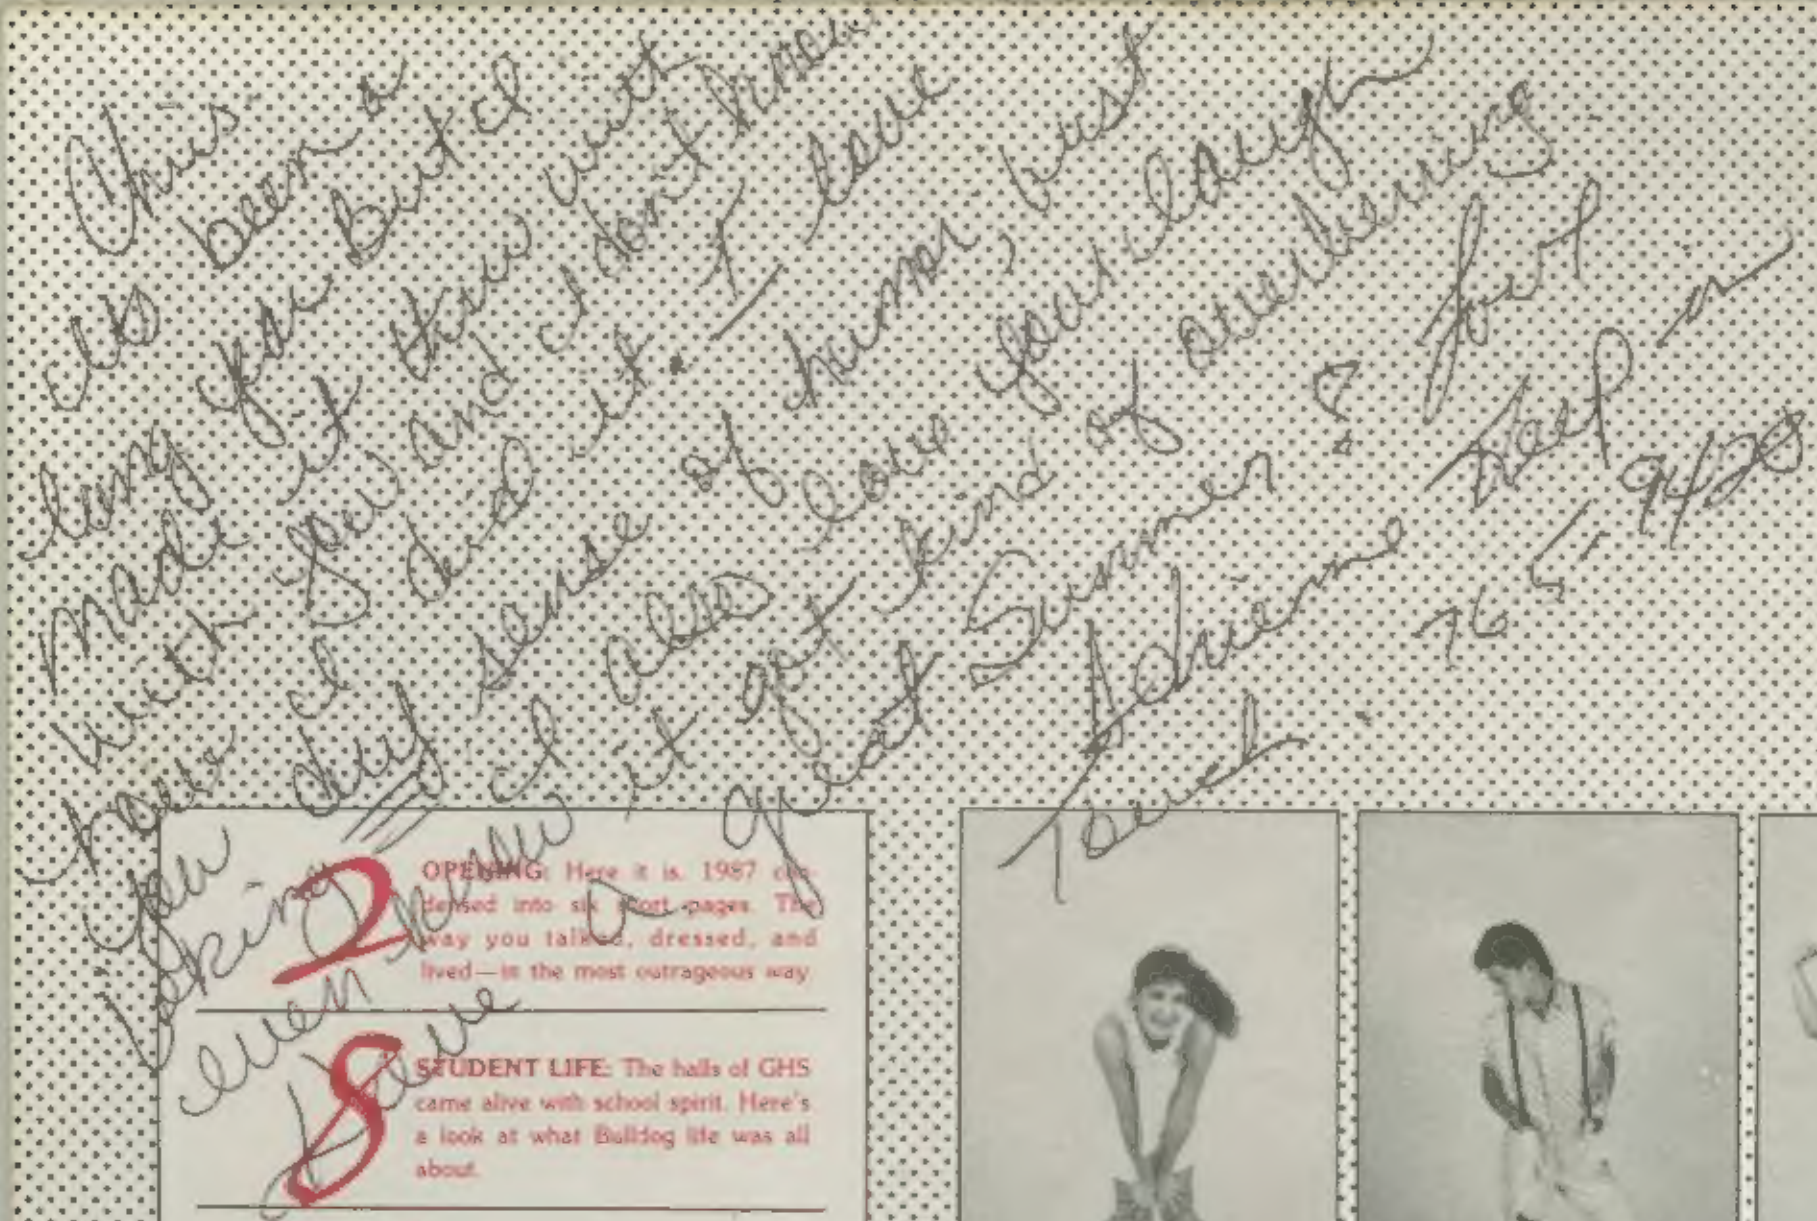 Chris
Its been a
long year but I
made it thru with
with you and I don't know
how I did it. — I love
you dry sense of humor, but
joking I also love your laugh
even know it got kind of overbering
Have a great Summer &
Adrienne Keep in
Touch
765-9428
2
OPENING: Here it is. 1987 con-
densed into six short pages. The
way you talked, dressed, and
lived—in the most outrageous way
8
STUDENT LIFE: The halls of GHS
came alive with school spirit. Here's
a look at what Bulldog life was all
about.